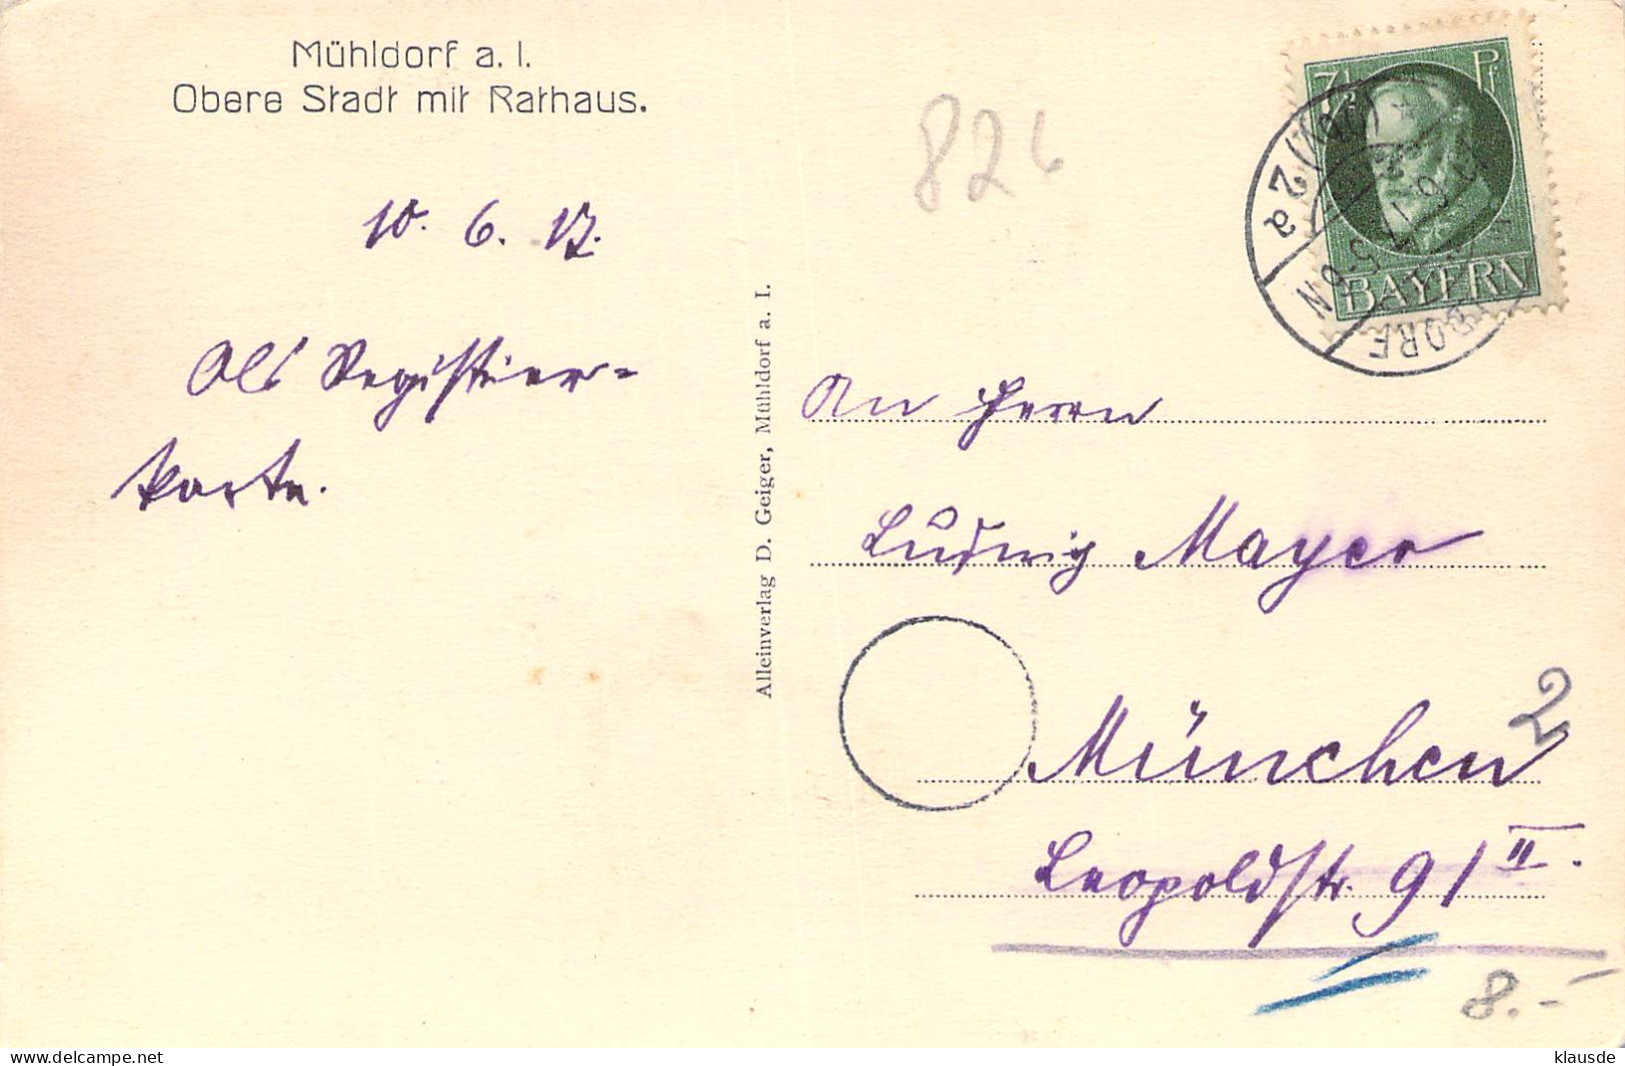 Mühldorf a. I.
Obere Stadt mit Rathaus.
10. 6. 17.
Als Registrier-
karte.
Alleinverlag D. Geiger, Mühldorf a. I.
826
7½ Pf
BAYERN
2 a
5-6 N
DORF
An Herrn
Ludwig Mayer
München
2
Leopoldstr. 91 II.
8.-
www.delcampe.net
klausde